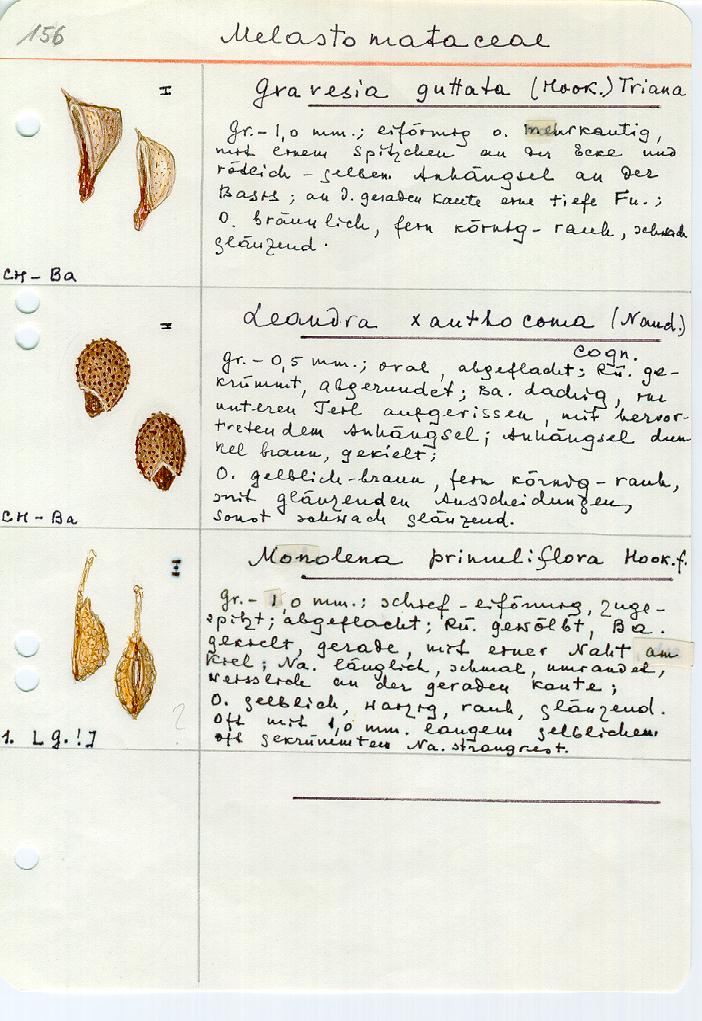 156
Melastomataceae
Gravesia guttata (Hook.) Triana
gr.- 1,0 mm.; eiförmig o. mehrkantig,
mit einem Spitzchen an der Ecke und
rötlich-gelbem Anhängsel an der
Basis; an d. geraden Kante eine tiefe Fu.;
O. bräunlich, fein körnig-rauh, schwach
glänzend.
CH-Ba
Leandra xanthocoma (Naud.)
Cogn.
gr.- 0,5 mm.; oval, abgeflacht; Rü. ge-
krümmt, abgerundet; Ba. dachig, im
unteren Teil aufgerissen, mit hervor-
tretendem Anhängsel; Anhängsel dun
kel braun, gekielt;
O. gelblich-braun, fein körnig-rauh,
mit glänzenden Ausscheidungen,
sonst schwach glänzend.
CH-Ba
Monolena primuliflora Hook.f.
gr.- 1,0 mm.; schief-eiförmig, zuge-
spitzt; abgeflacht; Rü. gewölbt, Ba.
gekielt, gerade, mit einer Naht am
Kiel; Na. länglich, schmal, umrandet,
weisslich an der geraden Kante;
O. gelblich, harzig, rauh, glänzend.
Oft mit 1,0 mm. langem gelblichem
oft gekrümmten Na.strangrest.
?
1. Lg.!J